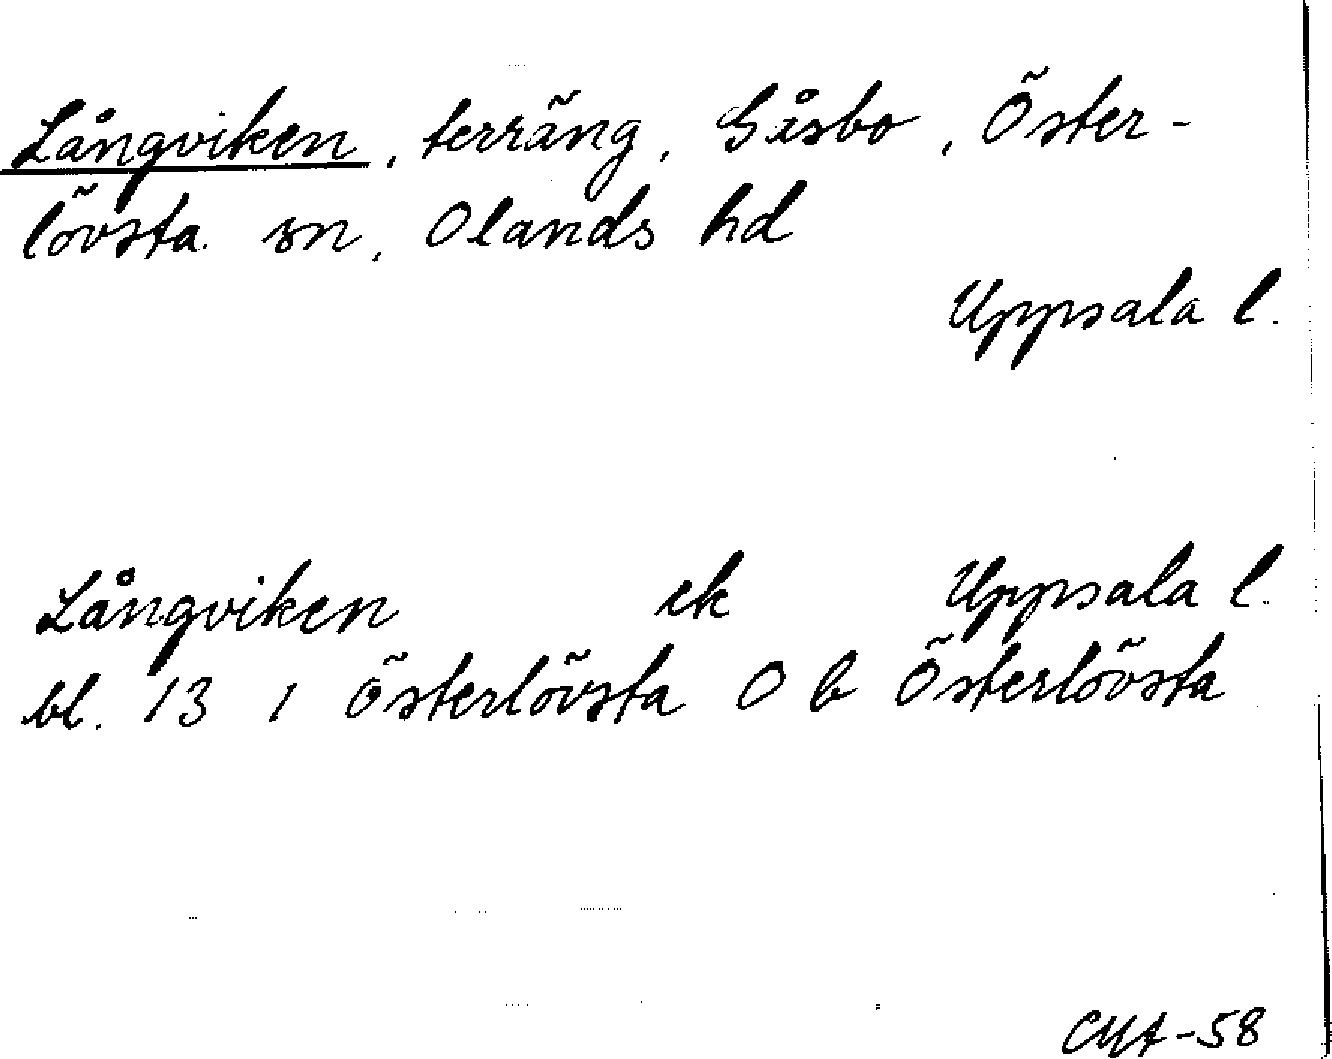 Långviken, terräng, Gåsbo, Öster-
lövsta sn, Olands hd
Uppsala l.
Långviken ek Uppsala l.
bl. 13 1 Österlövsta O b Österlövsta
-58